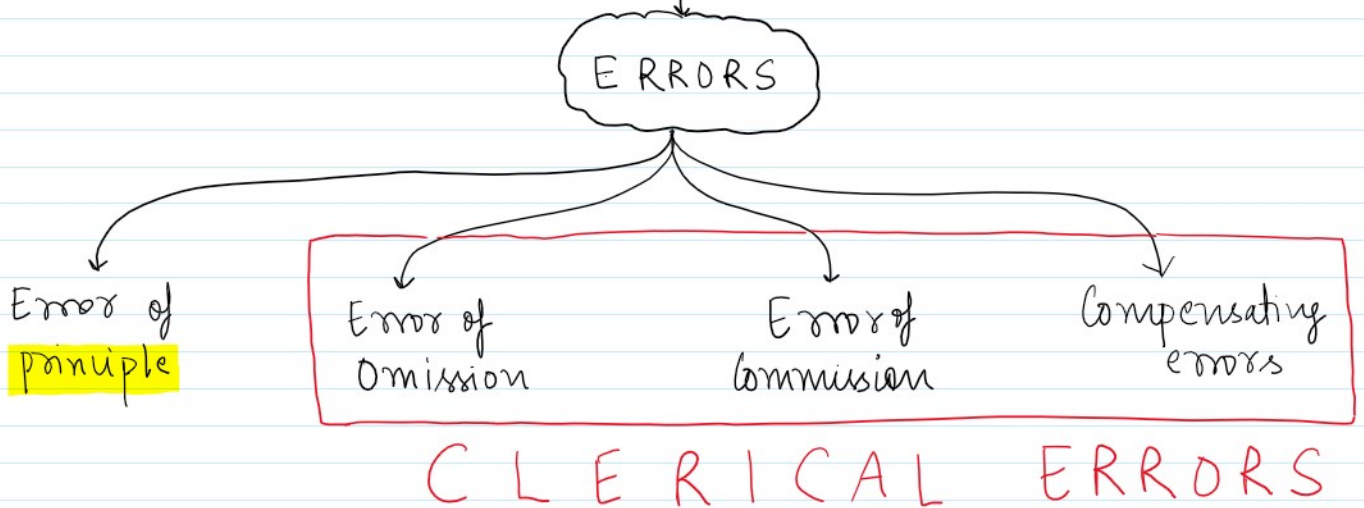 ERRORS
Error of
principle
Error of
Omission
Error of
Commission
Compensating
errors
CLERICAL ERRORS